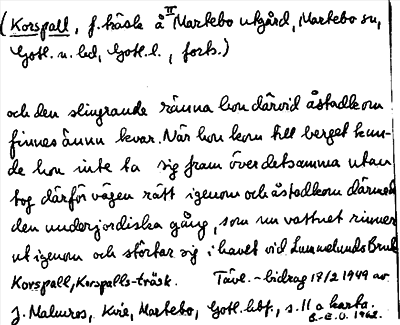 (Korspall, f. träsk å II Martebo utgård, Martebo sn,
Gotl. n. hd, Gotl. l., forts.)
och den slingrande ränna hon därvid åstadkom
finnes ännu kvar. När hon kom till berget kun-
de hon inte ta sig fram över detsamma utan
tog därför vägen rätt igenom och åstadkom därmed
den underjordiska gång, som nu vattnet rinner
ut igenom och störtar sig i havet vid Lummelunds Bruk
Korspall, Korspalls-träsk. Tävl.-bidrag 18/2 1949 av
J. Malmros, Kvie, Martebo, Gotl. hbf., s. 11 o karta.
B.-E. O. 1962.